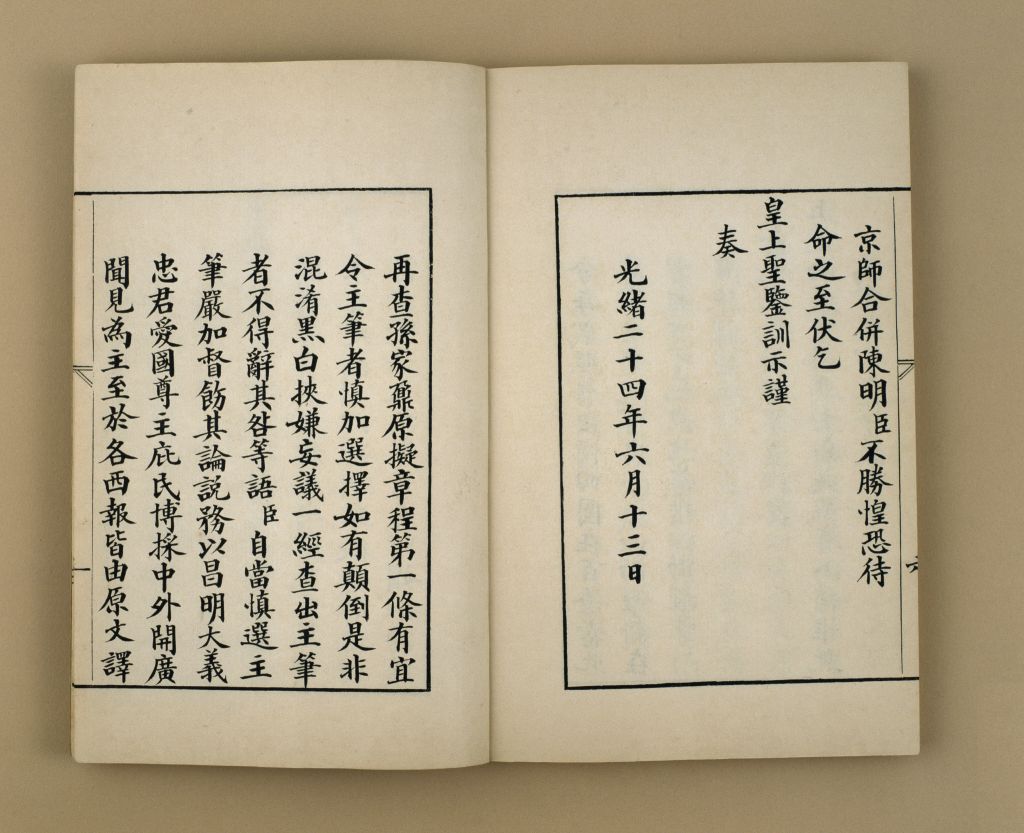 京師合併陳明臣不勝惶恐待
命之至伏乞
皇上聖鑒訓示謹
奏
光緒二十四年六月十三日
再查孫家鼐原擬章程第一條有宜
令主筆者慎加選擇如有顛倒是非
混淆黑白挾嫌妄議一經查出主筆
者不得辭其咎等語臣自當慎選主
筆嚴加督飭其論說務以昌明大義
忠君愛國尊主庇民博採中外開廣
聞見為主至於各西報皆由原文譯